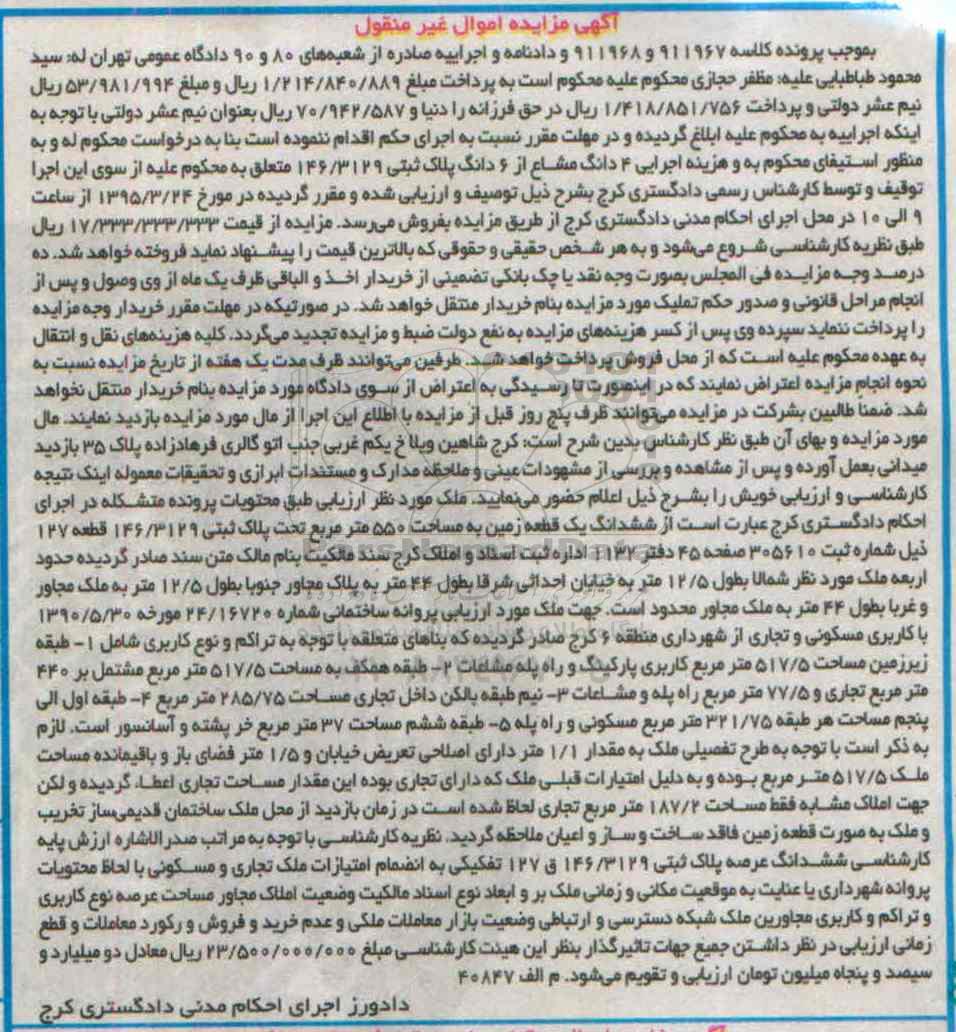 آگهی مزایده اموال غیر منقول
بموجب پرونده کلاسه ۹۱۱۹۶۷ و ۹۱۱۹۶۸ و دادنامه و اجراییه صادره از شعبه‌های ۸۰ و ۹۰ دادگاه عمومی تهران له: سید
محمود طباطبایی علیه: مظفر حجازی محکوم علیه محکوم است به پرداخت مبلغ ۱/۲۱۴/۸۴۰/۸۸۹ ریال و مبلغ ۵۳/۹۸۱/۹۹۴ ریال
نیم عشر دولتی و پرداخت ۱/۴۱۸/۸۵۱/۷۵۶ ریال در حق فرزانه را دنیا و ۷۰/۹۴۲/۵۸۷ ریال بعنوان نیم عشر دولتی با توجه به
اینکه اجراییه به محکوم علیه ابلاغ گردیده و در مهلت مقرر نسبت به اجرای حکم اقدام ننموده است بنا به درخواست محکوم له و به
منظور استیفای محکوم به و هزینه اجرایی ۴ دانگ مشاع از ۶ دانگ پلاک ثبتی ۱۴۶/۳۱۲۹ متعلق به محکوم علیه از سوی این اجرا
توقیف و توسط کارشناس رسمی دادگستری کرج بشرح ذیل توصیف و ارزیابی شده و مقرر گردیده در مورخ ۱۳۹۵/۳/۲۴ از ساعت
۹ الی ۱۰ در محل اجرای احکام مدنی دادگستری کرج از طریق مزایده بفروش می‌رسد. مزایده از قیمت ۱۷/۳۳۳/۳۳۳/۳۳۳ ریال
طبق نظریه کارشناسی شروع می‌شود و به هر شخص حقیقی و حقوقی که بالاترین قیمت را پیشنهاد نماید فروخته خواهد شد. ده
درصد وجه مزایده فی المجلس بصورت وجه نقد یا چک بانکی تضمینی از خریدار اخذ و الباقی ظرف یک ماه از وی وصول و پس از
انجام مراحل قانونی و صدور حکم تملیک مورد مزایده بنام خریدار منتقل خواهد شد. در صورتیکه در مهلت مقرر خریدار وجه مزایده
را پرداخت ننماید سپرده وی پس از کسر هزینه‌های مزایده به نفع دولت ضبط و مزایده تجدید می‌گردد. کلیه هزینه‌های نقل و انتقال
به عهده محکوم علیه است که از محل فروش پرداخت خواهد شد. طرفین می‌توانند ظرف مدت یک هفته از تاریخ مزایده نسبت به
نحوه انجام مزایده اعتراض نمایند که در اینصورت تا رسیدگی به اعتراض از سوی دادگاه مورد مزایده بنام خریدار منتقل نخواهد
شد. ضمنا طالبین بشرکت در مزایده می‌توانند ظرف پنج روز قبل از مزایده با اطلاع این اجرا از مال مورد مزایده بازدید نمایند. مال
مورد مزایده و بهای آن طبق نظر کارشناس بدین شرح است: کرج شاهین ویلا خ یکم غربی جنب اتو گالری فرهادزاده پلاک ۳۵ بازدید
میدانی بعمل آورده و پس از مشاهده و بررسی از مشهودات عینی و ملاحظه مدارک و مستندات ابرازی و تحقیقات معموله اینک نتیجه
کارشناسی و ارزیابی خویش را بشرح ذیل اعلام حضور می‌نمایید. ملک مورد نظر ارزیابی طبق محتویات پرونده متشکله در اجرای
احکام دادگستری کرج عبارت است از ششدانگ یک قطعه زمین به مساحت ۵۵۰ متر مربع تحت پلاک ثبتی ۱۴۶/۳۱۲۹ قطعه ۱۲۷
ذیل شماره ثبت ۳۰۵۶۱۰ صفحه ۴۵ دفتر ۱۱۳۲ اداره ثبت اسناد و املاک کرج سند مالکیت بنام مالک متن سند صادر گردیده حدود
اربعه ملک مورد نظر شمالا بطول ۱۲/۵ متر به خیابان احداثی شرقا بطول ۴۴ متر به پلاک مجاور جنوبا بطول ۱۲/۵ متر به ملک مجاور
و غربا بطول ۴۴ متر به ملک مجاور محدود است. جهت ملک مورد ارزیابی پروانه ساختمانی شماره ۲۴/۱۶۷۲۰ مورخه ۱۳۹۰/۵/۳۰
با کاربری مسکونی و تجاری از شهرداری منطقه ۶ کرج صادر گردیده که بناهای متعلقه با توجه به تراکم و نوع کاربری شامل ۱- طبقه
زیرزمین مساحت ۵۱۷/۵ متر مربع کاربری پارکینگ و راه پله مشاعات ۲- طبقه همکف به مساحت ۵۱۷/۵ متر مربع مشتمل بر ۴۴۰
متر مربع تجاری و ۷۷/۵ متر مربع راه پله و مشاعات ۳- نیم طبقه بالکن داخل تجاری مساحت ۲۸۵/۷۵ متر مربع ۴- طبقه اول الی
پنجم مساحت هر طبقه ۳۲۱/۷۵ متر مربع مسکونی و راه پله ۵- طبقه ششم مساحت ۳۷ متر مربع خر پشته و آسانسور است. لازم
به ذکر است با توجه به طرح تفصیلی ملک به مقدار ۱/۱ متر دارای اصلاحی تعریض خیابان و ۱/۵ متر فضای باز و باقیمانده مساحت
ملک ۵۱۷/۵ متر مربع بوده و به دلیل امتیازات قبلی ملک که دارای تجاری بوده این مقدار مساحت تجاری اعطاء گردیده و لکن
جهت املاک مشابه فقط مساحت ۱۸۷/۲ متر مربع تجاری لحاظ شده است در زمان بازدید از محل ملک ساختمان قدیمی‌ساز تخریب
و ملک به صورت قطعه زمین فاقد ساخت و ساز و اعیان ملاحظه گردید. نظریه کارشناسی با توجه به مراتب صدر الاشاره ارزش پایه
کارشناسی ششدانگ عرصه پلاک ثبتی ۱۴۶/۳۱۲۹ ق ۱۲۷ تفکیکی به انضمام امتیازات ملک تجاری و مسکونی با لحاظ محتویات
پروانه شهرداری یا عنایت به موقعیت مکانی و زمانی ملک بر و ابعاد نوع اسناد مالکیت وضعیت املاک مجاور مساحت عرصه نوع کاربری
و تراکم و کاربری مجاورین ملک شبکه دسترسی و ارتباطی وضعیت بازار معاملات ملکی و عدم خرید و فروش و رکورد معاملات و قطع
زمانی ارزیابی در نظر داشتن جمیع جهات تاثیرگذار بنظر این هیئت کارشناسی مبلغ ۲۳/۵۰۰/۰۰۰/۰۰۰ ریال معادل دو میلیارد و
سیصد و پنجاه میلیون تومان ارزیابی و تقویم می‌شود. م الف ۴۰۸۴۷
دادورز اجرای احکام مدنی دادگستری کرج